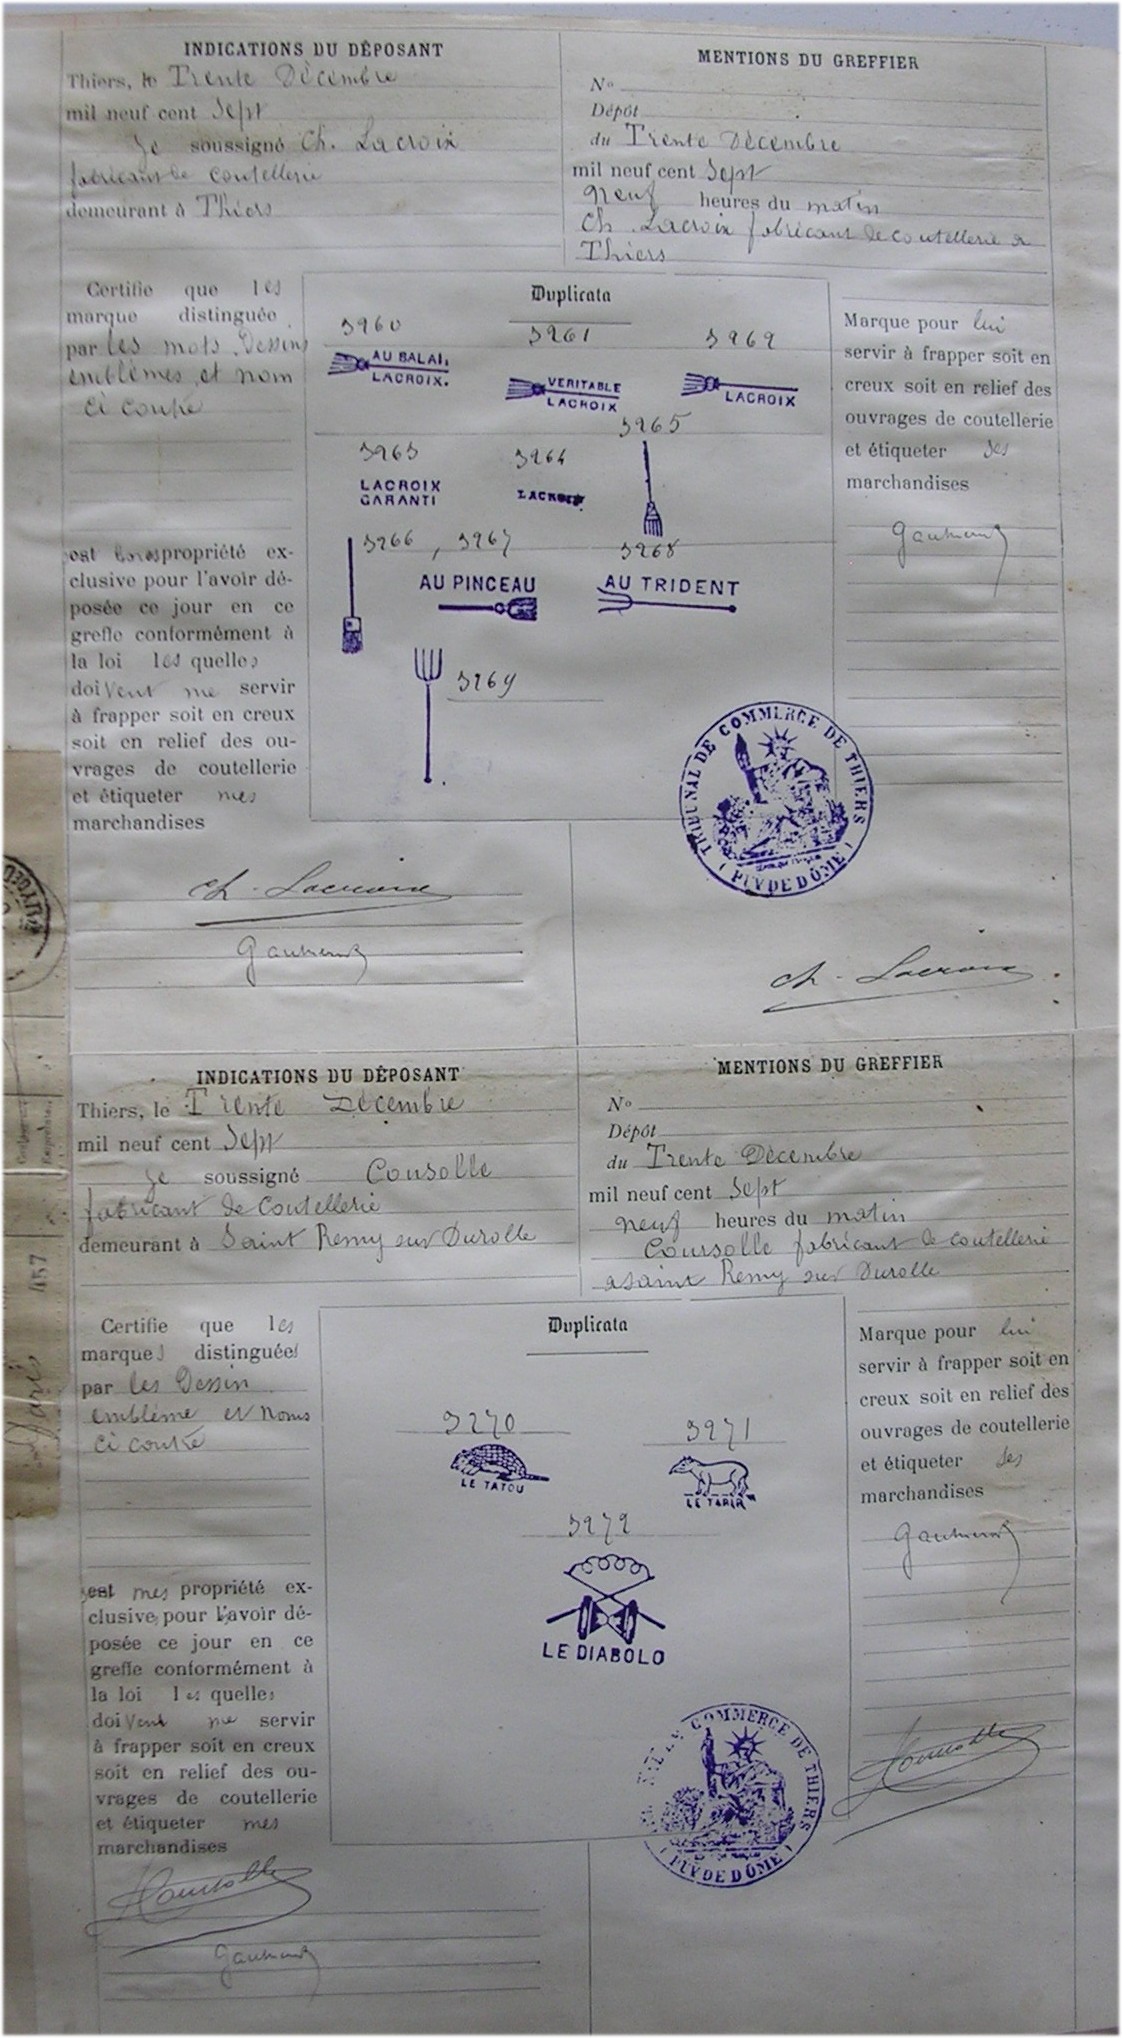 INDICATIONS DU DÉPOSANT
Thiers, le Trente Décembre
mil neuf cent Sept
Je soussigné Ch. Lacroix
fabricant de coutellerie
demeurant à Thiers
MENTIONS DU GREFFIER
No
Dépôt
du Trente Décembre
mil neuf cent Sept
neuf heures du matin
Ch. Lacroix fabricant de coutellerie a
Thiers
Certifie que les
marque distinguée
par les mots Dessins
emblèmes et nom
ci contre
est propriété ex-
clusive pour l'avoir dé-
posée ce jour en ce
greffe conformément à
la loi les quelles
doivent me servir
à frapper soit en creux
soit en relief des ou-
vrages de coutellerie
et étiqueter mes
marchandises
Duplicata
3260
3261
3262
AU BALAI
LACROIX.
VERITABLE
LACROIX
LACROIX
3263
3264
3265
LACROIX
GARANTI
LACROIX
3266, 3267
3268
AU PINCEAU
AU TRIDENT
3269
TRIBUNAL DE COMMERCE DE THIERS
(PUY DE DÔME)
Marque pour lui
servir à frapper soit en
creux soit en relief des
ouvrages de coutellerie
et étiqueter ses
marchandises
Ch. Lacroix
Ch. Lacroix
INDICATIONS DU DÉPOSANT
Thiers, le Trente Décembre
mil neuf cent Sept
Je soussigné Cousolle
fabricant de coutellerie
demeurant à Saint Remy sur Durolle
MENTIONS DU GREFFIER
No
Dépôt
du Trente Décembre
mil neuf cent Sept
neuf heures du matin
Coursolle fabricant de coutellerie
a saint Remy sur Durolle
Certifie que les
marques distinguées
par les Dessin
emblème et Noms
ci contre
est mes propriété ex-
clusive pour l'avoir dé-
posée ce jour en ce
greffe conformément à
la loi les quelles
doivent me servir
à frapper soit en creux
soit en relief des ou-
vrages de coutellerie
et étiqueter mes
marchandises
Duplicata
3270
3271
LE TATOU
LE TAPIR
3272
LE DIABOLO
COMMERCE DE THIERS
(PUY DE DÔME)
Marque pour lui
servir à frapper soit en
creux soit en relief des
ouvrages de coutellerie
et étiqueter ses
marchandises
Coursolle
Coursolle
457